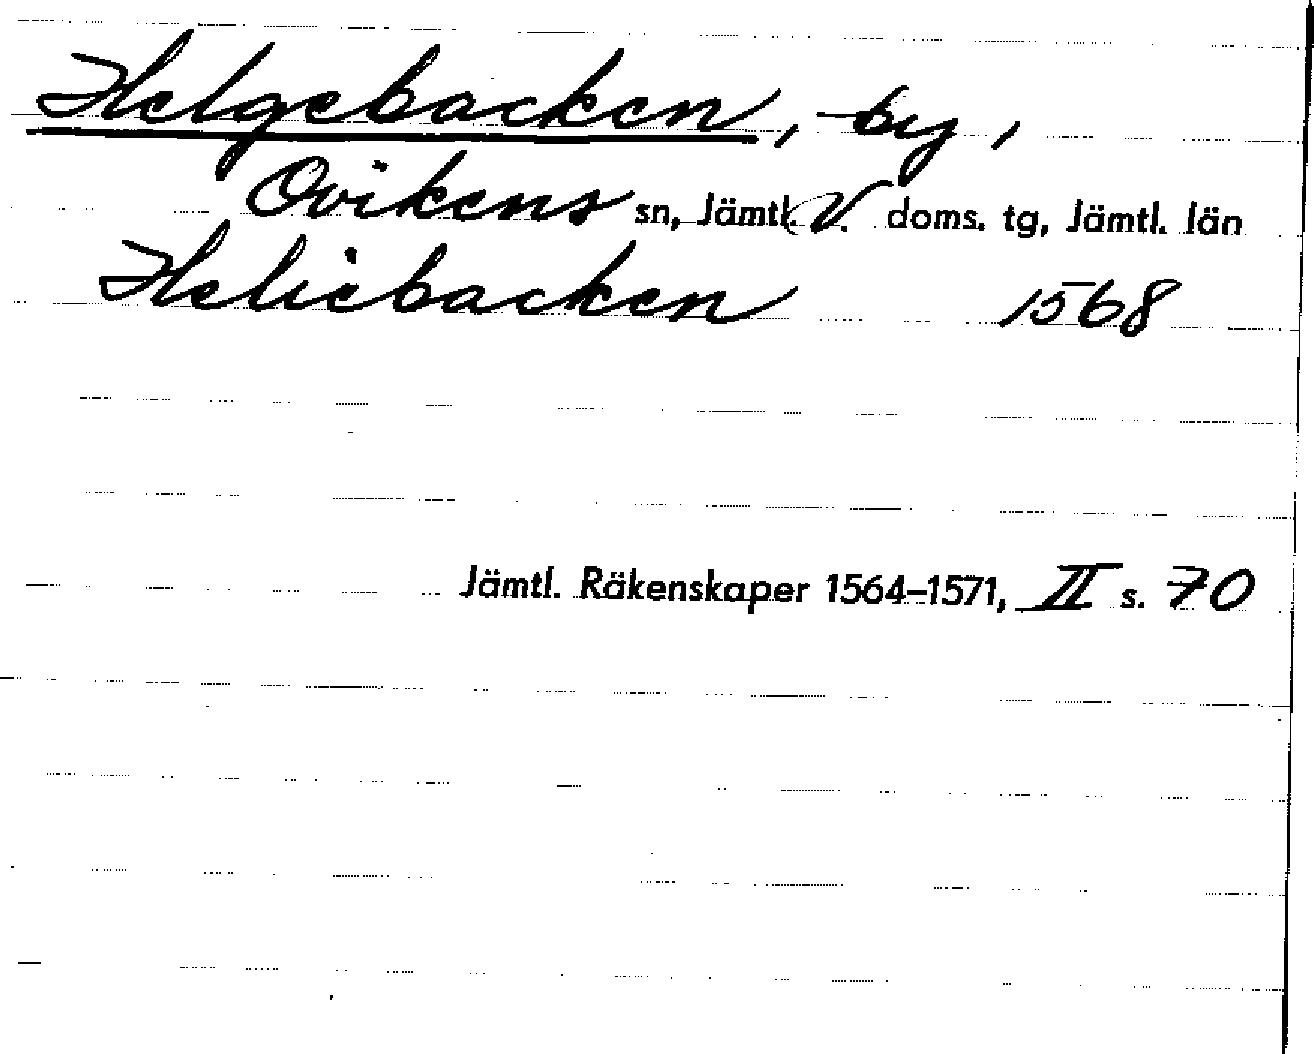 Helgebacken, by,
Ovikens sn, Jämtl. V. doms. tg, Jämtl. län
Heliebacken 1568
Jämtl. Räkenskaper 1564–1571, II s. 70